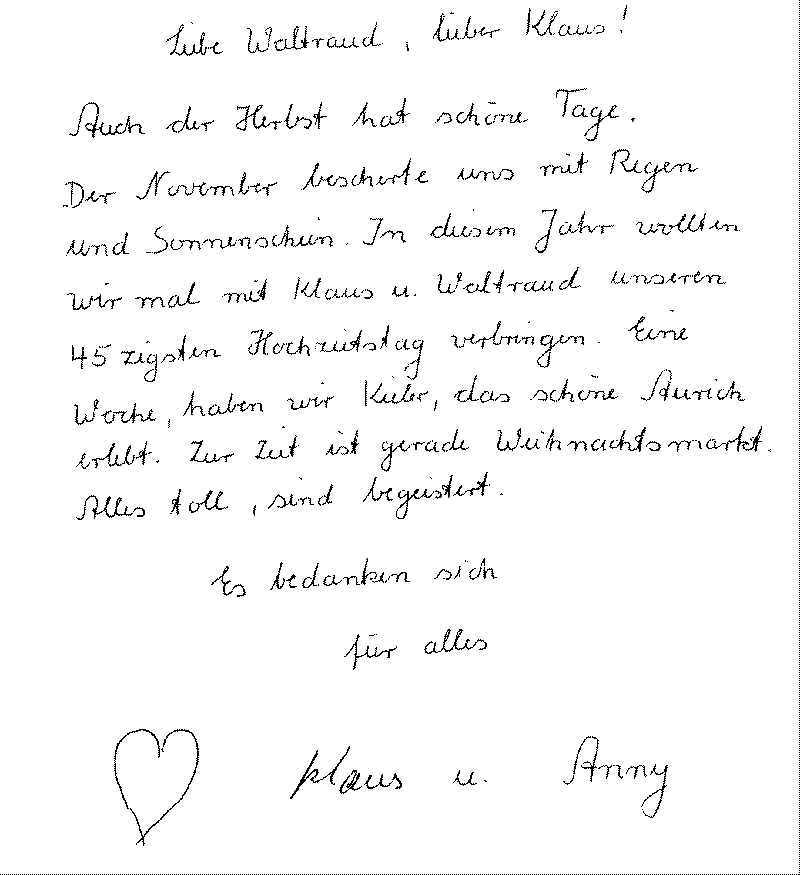 Liebe Waltraud, lieber Klaus!
Auch der Herbst hat schöne Tage.
Der November bescherte uns mit Regen
und Sonnenschein. In diesem Jahr wollten
wir mal mit Klaus u. Waltraud unseren
45 zigsten Hochzeitstag verbringen. Eine
Woche, haben wir Kieler, das schöne Aurich
erlebt. Zur Zeit ist gerade Weihnachtsmarkt.
Alles toll, sind begeistert.
Es bedanken sich
für alles
Klaus u. Anny